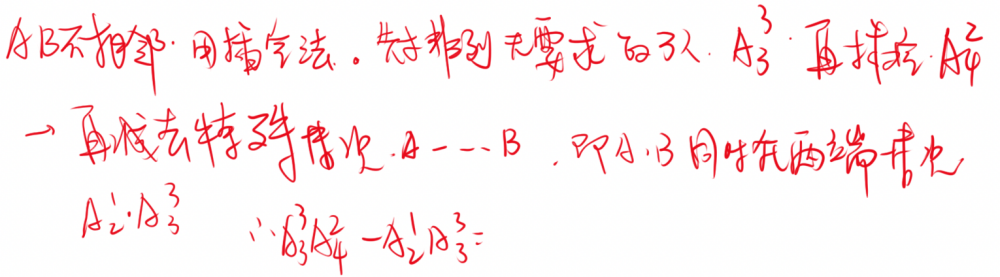 AB不相邻.用插空法。先排列无要求的3人.A₃³.再插空.A₄²
→再减去特殊情况.A----B.即A.B同时在两端情况
A₂¹·A₃³ ∴A₃³A₄²-A₂¹A₃³=